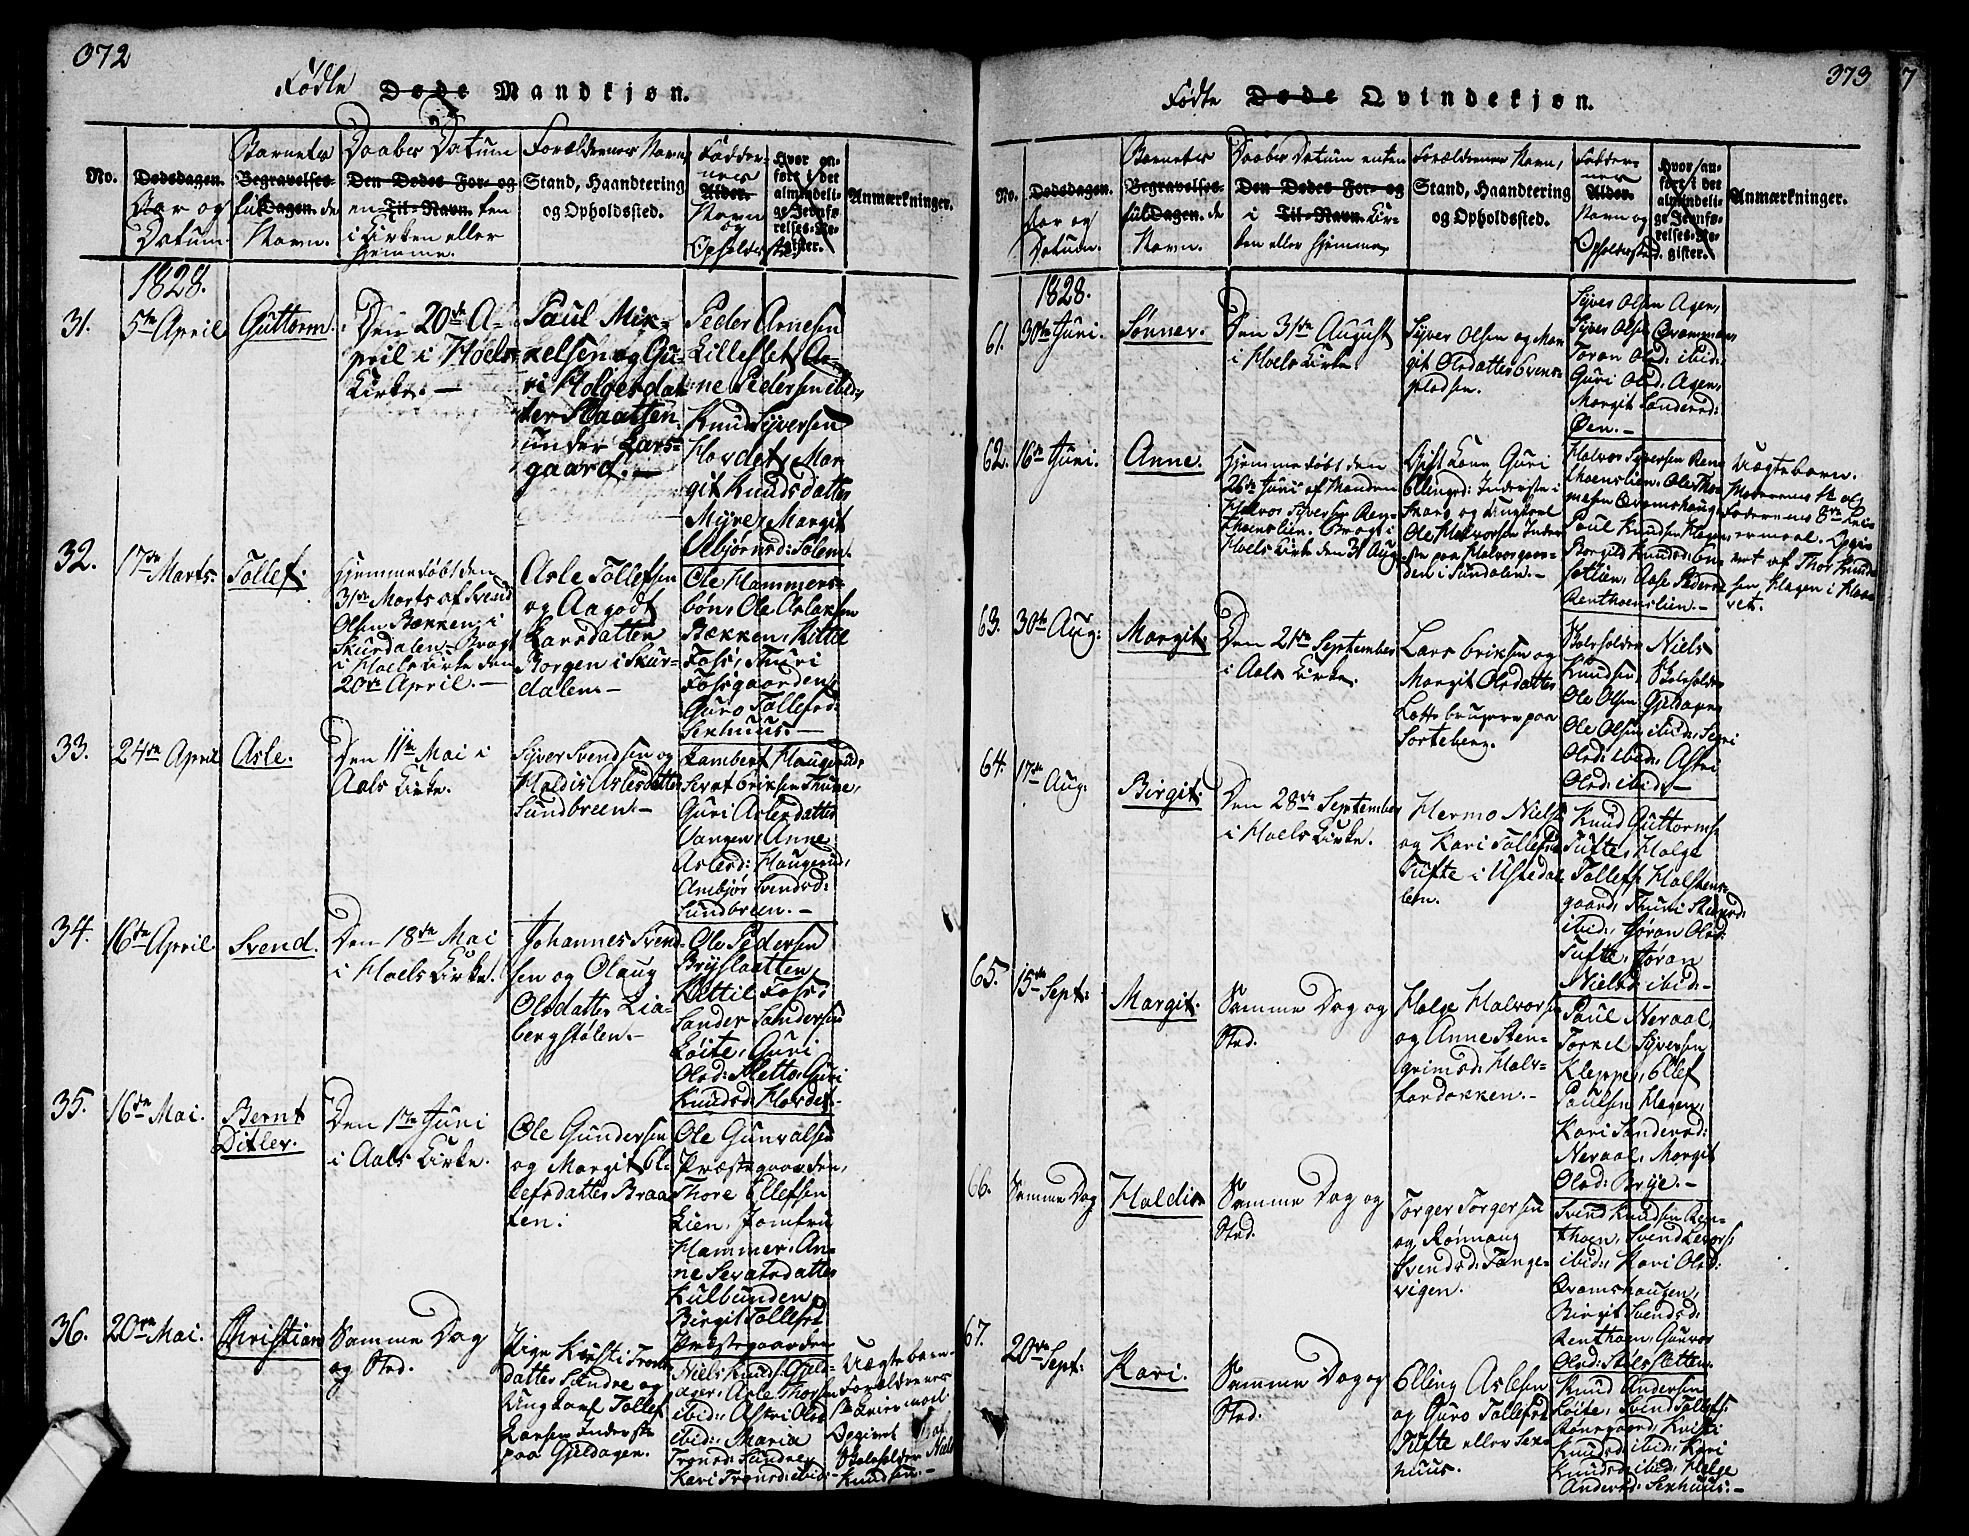 372
Födte Døde Mandkjøn.
No.
Dødsdagen.
Aar og
Datum.
Barnets
Begravelses-
ful Dagen. de
Navn.
Daabes Datum
Den Dødes For- og
en Til-Navn. ten
i Kirken eller
hjemme.
Forældrenes Navn,
Stand, Haandtering
og Opholdssted.
Fadder-
nes
Alder.
Navn
og
Opholdssted.
Hvor an-
ført i det
almindeli-
ge Jevnfø-
relses-Re-
gister.
Anmærkninger.
1828.
31.
5te April
Guttorm.
Den 20de A-
pril i Hoels
Kirke. —
Paul Mik-
kelsen og Gu-
ri Holgersdat
ter Slaatten
under Lars-
gaard. —
Peder Arnesen
Lilleslet, Ar-
ne Pedersen ibid.,
Knud Syversen
Hovdet, Mar-
git Knudsdatter
Myre, Margit
Asbjørnsd: Solem.
32.
17de Marts.
Tollef.
Hjemmedøbt den
31te Marts af Svend
Olsen Bækken i
Skurdalen. Bragt
i Hoels Kirke den
20de April. —
Asle Tollefsen
og Aagodt
Larsdatter
Borgen i Skur-
dalen. —
Ole Hammers-
bøn, Ole Aslaksen
Bækken, Kittil
Foss, Thuri
Fossgaarden,
Guro Tollefsd:
Sexhuus. —
33.
24de April
Asle.
Den 11te Mai i
Aals Kirke.
Syver Svendsen og
Haldis Aslesdatter
Sundbreen. —
Lambert Haugerud,
Sevat Eriksen Thune,
Guri Aslesdatter
Vangen, Anne
Aslesd: Haugerud,
Ambjør Svendsd:
Sundbreen. —
34.
16de April.
Svend.
Den 18de Mai
i Hoels Kirke.
Johannes Svend-
sen og Olaug
Olsdatter Lia-
bergstølen. —
Ole Pedersen
Bryslaatten,
Kittil Foss,
Sander Sandersen
Løite, Guri
Olsd: Sletto, Guri
Knudsd: Hovdet. —
35.
16de Mai.
Bernt
Ditlev.
Den 1te Juni
i Aals Kirke.
Ole Gundersen
og Margit El-
lefsdatter Braa
ten.
Ole Gunvalsen
Præstegaarden,
Thore Ellefsen
Lien, Jomfru
Hammer, An-
ne Sevatsdatter
Kulbunden,
Birgit Tollefsd
Præstegaarden
36.
20de Mai.
Christian
Samme Dag
og Sted.
Pige Kristi Trons
datter Sundre og
Ungkarl Tollef
Larsen Inderste
paa Gjeldagen.
Niels Knuds. Gjeld-
ager, Asle Thorsen
ibid:, Astri Olsd
ibid:, Maria
Tronsd: Sundre,
Kari Tronsd: ibid: —
Uægte barn.
Forældrenes
1te Leiermaal
Opgivet af
Skoleholder Niels
Knudsen. —
373
Födte Døde Qvindekjøn.
No.
Dødsdagen.
Aar og
Datum.
Barnets
Begravelses-
ful Dagen. de
Navn.
Daabes Datum enten
Den Dødes For- og
i Til-Navn. Kir-
ken eller hjemme,
Forældrenes Navn,
Stand, Haandtering
og Opholdssted.
Fadder-
nes
Alder.
Navn og
Opholdssted.
Hvor an-
ført i det
almindeli-
ge Jevnfø-
relses-Re-
gister.
Anmærkninger.
1828.
61.
30te Juni.
Sønnev.
Den 3die August
i Hoels Kirke.
Syver Olsen og Mar
git Olsdatter Svens
gelodsen.
Syver Olsen Agen,
Syver Olsen Qvammen,
Joran Olsd: ibid:
Guri Olsd: Agen,
Margit Sandersd:
Øen. —
62.
16de Juni.
Anne.
Hjemmedøbt den
26de Juni af Manden
Halvor Syversen Ren-
thoenslien. Bragt i
Hoels Kirke den 3 Aug
Gift Kone, Guri
Ellingsd: Inderste i
og Ungkarl
Ole Halvorsen Inder
ste paa Halvorgaar-
den i Sundalen. —
Halvor Syversen Ren-
thoenslien, Ole Tho-
mesen Qvamshaug,
Paul Knudsen Hagen,
Borgild Knudsd: Bøn
setlien, Aase Pedersd
Renthoenslien. —
Uægte barn.
Moderens 1te og
Faderens 8de Lei-
ermaal. Opgiv
vet af Thor Knud
sen Hagen i Haa
vet.
63.
30te Aug:
Margit.
Den 21de September
i Aals Kirke.
Lars Eriksen og
Margit Olsdatter
Lottebrugere paa
Sorteberg.
Skoleholder Niels
Knudsen, Skoleholder
Ole Olsen Gjeldager,
Ole Olsen ibid:, Segri
Olsd: ibid:, Astri
Olsd: ibid: —
64.
17de Aug.
Birgit.
Den 28de September
i Hoels Kirke.
Hermo Niels.
og Kari Tollefsd
Tufte i Ustedal
len.
Knud Guttorms.
Tufte, Holge
Tollefs. Halstens-
gaard, Thuri Steensd:
ibid:, Joran Olsd:
Tufte, Joran
Nielsd ibid: —
65.
15de Sept:
Margit.
Samme Dag og
Sted.
Holge Halvorsen
og Anne Sten-
grimsd: Halv-
hardokken. —
Paul Neraal,
Torkel Syversen
Kleppe, Ellef
Paulsen Hagen,
Kari Sandersd:
Neraal, Margit
Olsd: Brye. —
66.
Samme Dag
Haldis
Samme Dag og
Sted.
Torger Torgersen
og Rønnaug
Svendsd: Tange-
vigen.
Svend Knudsen Ren-
thoen, Svend Levors.
ibid:, Kari Olsd:
Qvamshaugen,
Birgit Svendsd:
Renthoen, Gunvor
Olsd: Stilsletten.
67.
20de Sept:
Kari.
Samme Dag og
Sted.
Elling Aslesen
og Guro Tollefsd
Tufte eller Sex-
huus.
Knud Andersen
Løite, Svend Tollefs:
Kristi
Knudsd: ibid:, Kari
Knudsd: ibid:, Helge
Andersd: Sexhuus. —
7